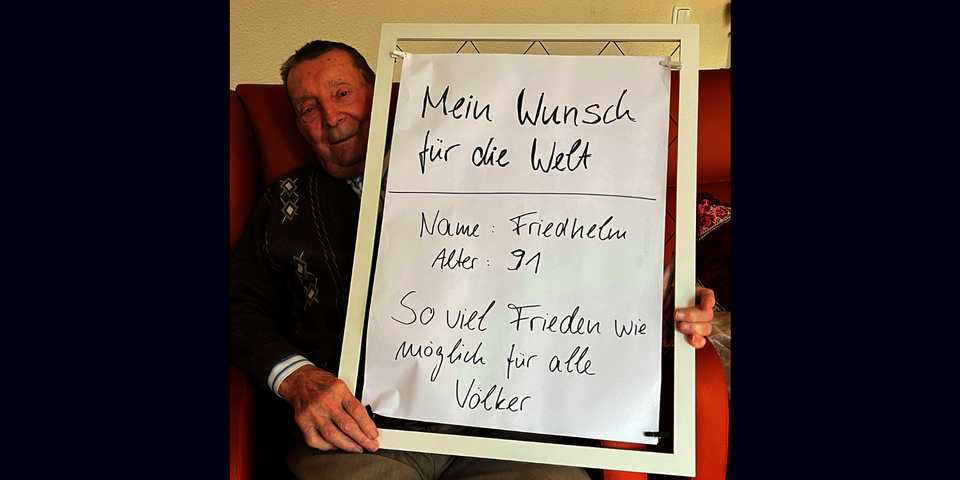 Mein Wunsch
für die Welt
Name: Friedhelm
Alter: 91
So viel Frieden wie
möglich für alle
Völker